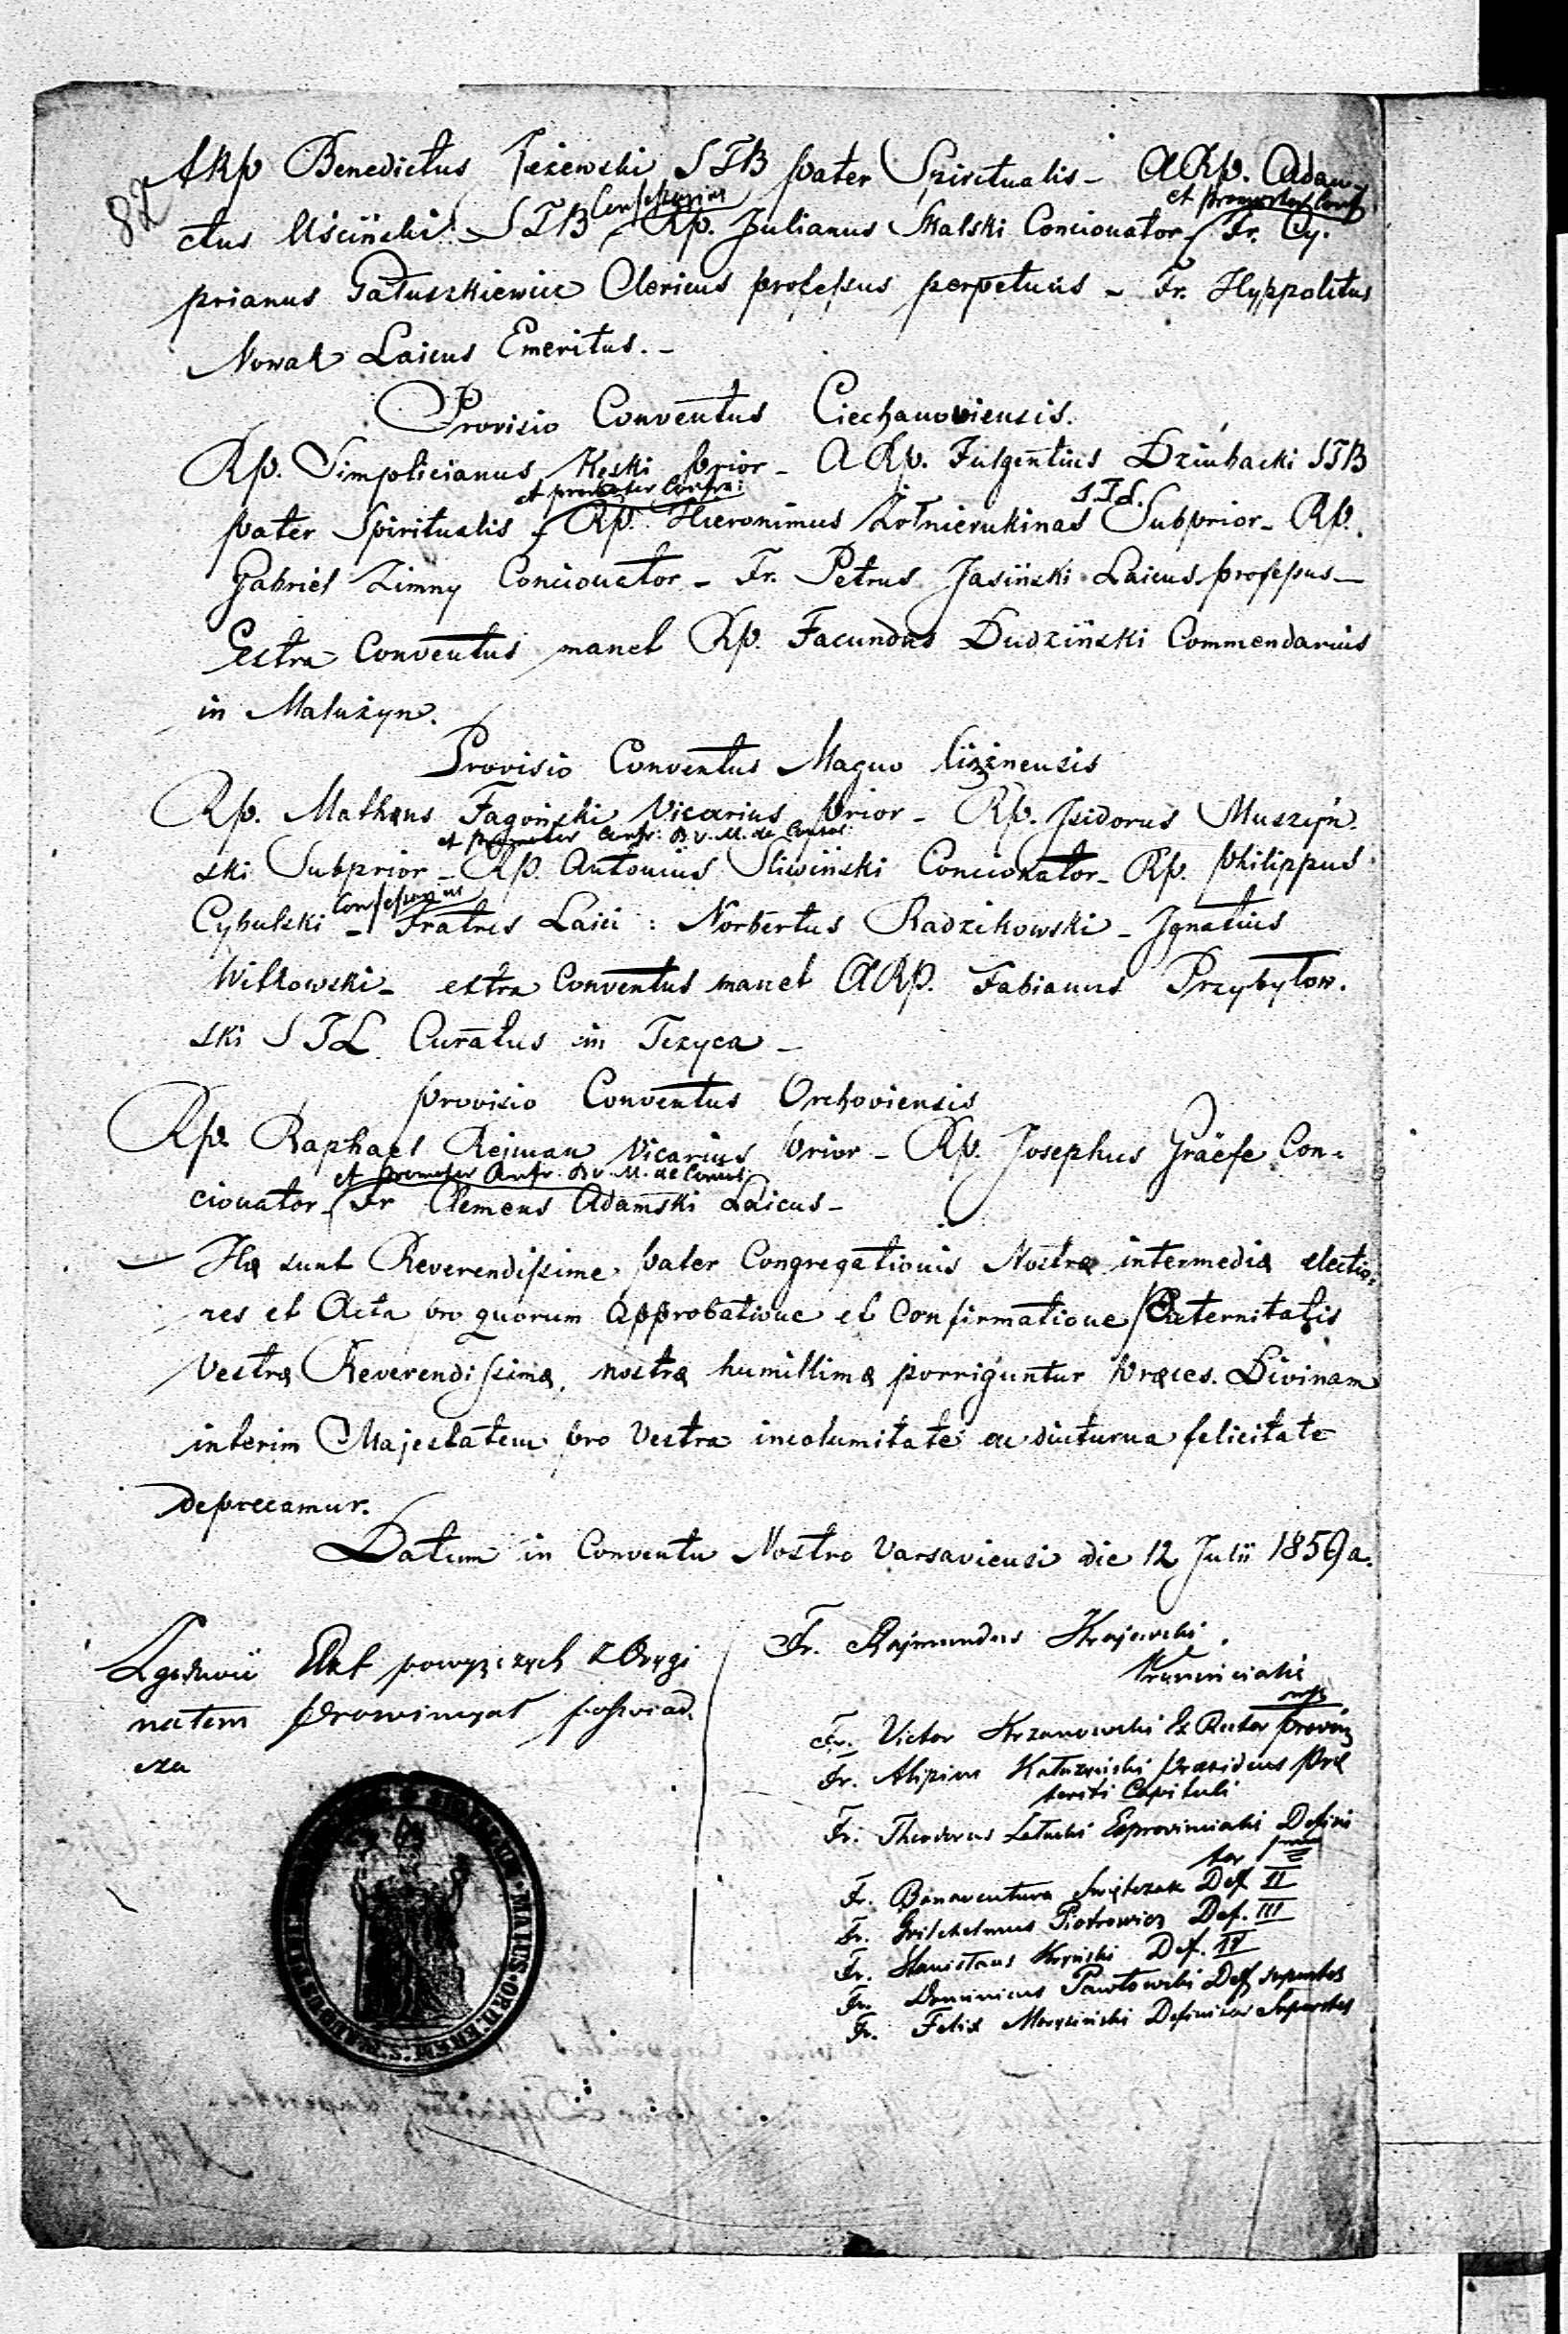 82
ARP Benedictus Jeżewski STB pater Spiritualis - ARP. Adau-
Confessarius et promotor Conf.
ctus Uściński STB - RP. Julianus Skalski Concionator - Fr. Cy.
prianus Gałuszkiewicz Clericus professus perpetuus - Fr. Hyppolitus
Nowak Laicus Emeritus. -
Provisio Conventus Ciechanoviensis.
RP. Simplicianus Kęski prior - ARP. Fulgentius Dziubacki STB
et promotor Confra: S.T.L.
pater Spiritualis - RP. Hieronimus Subprior - RP.
Gabriel Zimny Concionator - Fr. Petrus Jasiński Laicus professus -
Extra Conventus manet RP. Facundus Dudziński Commendarius
in Malużyn.
Provisio Conventus Magno
RP. Matheus Fagoński Vicarius prior - RP. Isidorus Muszyń.
et promotor Confr: B.V.M. de Consol:
ski Subprior - RP. Antonius Sliwiński Concionator - RP. Philippus
Confessarius
Cybulski - Fratres Laici : Norbertus Radzikowski - Ignatius
Witkowski - extra Conventus manet ARP. Fabianus Przybyłow.
ski STL Curatus in Tczyca -
provisio Conventus Orchoviensis
RP. Raphael Rejman Vicarius prior - RP. Josephus Gräefe Con-
et promotor Confr. B.V.M. de Consol:
cionator - Fr Clemens Adamski Laicus -
- Hæ sunt Reverendissime pater Congregationis Nostræ intermediæ electio-
nes et Acta pro quorum approbatione et confirmatione Paternitatis
Vestræ Reverendissimæ, nostræ humillimæ porriguntur præces. Divinam
interim Majestatem pro Vestra incolumitate ac diuturna felicitate
deprecamur.
Datum in Conventu Nostro Varsaviensi die 12 Julii 1859 a.
Zgodność Akt powyższych z Orygi
nałem Prowincyał poświad.
cza
Fr. Rajmundus Krajewski
Provincialis
mp
Fr. Victor Krzanowski Ex Rector Provin
Fr. Alipius Kałuzyński Præsidens Præ
teriti Capituli
Fr. Theodorus Łatacki Exprovincialis Defini
tor
Fr. Bonaventura Swiętczak Def. II
Fr. Guilhelmus Piotrowicz Def. III
Fr. Stanislaus Def. IV
Fr. Dominicus Pawłowski Def.
Fr. Felix Definitor